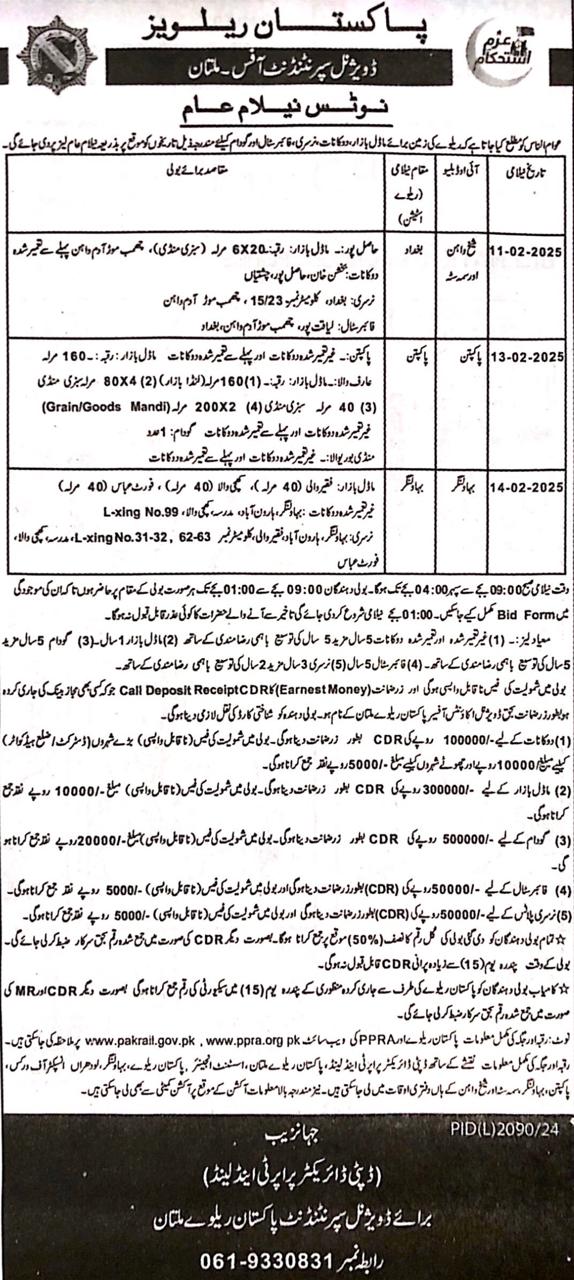 پاکستان ریلویز
عزمِ استحکام
ڈویژنل سپرنٹنڈنٹ آفس۔ ملتان
نوٹس نیلام عام
عوام الناس کو مطلع کیا جاتا ہے کہ ریلوے کی زمین برائے ماڈل بازار، دوکانات، نرسری، فائبر سٹال اور گودام کیلئے مندرجہ ذیل تاریخوں کو موقع پر بذریعہ نیلام عام لیز پر دی جائے گی۔
تاریخ نیلامی | آئی او ڈبلیو | مقام نیلامی (ریلوے اسٹیشن) | مقاصد برائے بولی
11-02-2025 | شیخ واہن اور سمہ سٹہ | بغداد | حاصل پور:۔ ماڈل بازار: رقبہ:۔ 6X20 مرلہ (سبزی منڈی)، چھمب موڑ آدم واہن پہلے سے تعمیر شدہ
دوکانات: بخشن خان، حاصل پور، چشتیاں
نرسری: بغداد، کلومیٹر نمبر: 15/23، چھمب موڑ آدم واہن
فائبر سٹال: لیاقت پور، چھمب موڑ آدم واہن، بغداد
13-02-2025 | پاکپتن | پاکپتن | پاکپتن:۔ غیر تعمیر شدہ دوکانات اور پہلے سے تعمیر شدہ دوکانات ماڈل بازار: رقبہ:۔ 160 مرلہ
عارف والا:۔ ماڈل بازار: رقبہ:۔ (1) 160 مرلہ (لنڈا بازار) (2) 80X4 مرلہ سبزی منڈی
(3) 40 مرلہ سبزی منڈی (4) 200X2 مرلہ (Grain/Goods Mandi)
غیر تعمیر شدہ دوکانات اور پہلے سے تعمیر شدہ دوکانات گودام: 1 عدد
منڈی بوریوالا:۔ غیر تعمیر شدہ دوکانات اور پہلے سے تعمیر شدہ دوکانات
14-02-2025 | بہاولنگر | بہاولنگر | ماڈل بازار: فقیر والی (40 مرلہ)، کھچی والا (40 مرلہ)، فورٹ عباس (40 مرلہ)
غیر تعمیر شدہ دوکانات: بہاولنگر، ہارون آباد، مدرسہ، کھچی والا، L-xing No.99
نرسری: بہاولنگر، ہارون آباد، فقیر والی، کلومیٹر نمبر 62-63 ,L-xing No.31-32، مدرسہ، کھچی والا،
فورٹ عباس
وقت نیلامی صبح 09:00 بجے سے سہ پہر 04:00 بجے تک ہوگا۔ بولی دہندگان 09:00 بجے سے 01:00 بجے تک ہر صورت بولی کے مقام پر حاضر ہوں تاکہ ان کی موجودگی
میں Bid Form مکمل کیے جاسکیں۔ 01:00 بجے نیلامی شروع کر دی جائے گی تاخیر سے آنے والے حضرات کا کوئی عذر قابل قبول نہ ہوگا۔
میعاد لیز:۔ (1) غیر تعمیر شدہ اور تعمیر شدہ دوکانات 5 سال مزید 5 سال کی توسیع باہمی رضامندی کے ساتھ (2) ماڈل بازار 1 سال۔ (3) گودام 5 سال مزید
5 سال کی توسیع باہمی رضامندی کے ساتھ۔ (4) فائبر سٹال 5 سال (5) نرسری 3 سال مزید 2 سال کی توسیع باہمی رضامندی کے ساتھ۔
بولی میں شمولیت کی فیس ناقابل واپسی ہوگی اور زرضمانت (Earnest Money) کا Call Deposit Receipt CDR جو کہ کسی بھی مجاز بینک کی جاری کردہ
ہو بطور زرضمانت بحق ڈویژنل اکاؤنٹس آفیسر پاکستان ریلوے ملتان کے نام ہو۔ بولی دہندہ کو شناختی کارڈ کی نقل لازمی دینا ہوگی۔
(1) دوکانات کے لیے -/100000 روپے کی CDR بطور زرضمانت دینا ہوگی۔ بولی میں شمولیت کی فیس (ناقابل واپسی) بڑے شہروں (ڈسٹرکٹ/ضلع ہیڈ کوارٹر)
کیلئے مبلغ -/10000 روپے اور چھوٹے شہروں کیلئے مبلغ -/5000 روپے نقد جمع کرانا ہوگی۔
(2) ماڈل بازار کے لیے -/300000 روپے کی CDR بطور زرضمانت دینا ہوگی۔ بولی میں شمولیت کی فیس (ناقابل واپسی) مبلغ -/10000 روپے نقد جمع
کرانا ہوگی۔
(3) گودام کے لیے -/500000 روپے کی CDR بطور زرضمانت دینا ہوگی۔ بولی میں شمولیت کی فیس (ناقابل واپسی) مبلغ -/20000 روپے نقد جمع کرانا ہو
گی۔
(4) فائبر سٹال کے لیے -/50000 روپے کی (CDR) بطور زرضمانت دینا ہوگی اور بولی میں شمولیت کی فیس (ناقابل واپسی) -/5000 روپے نقد جمع کرانا ہوگی۔
(5) نرسری پلاٹس کے لیے -/50000 روپے کی (CDR) بطور زرضمانت دینا ہوگی اور بولی میں شمولیت کی فیس (ناقابل واپسی) -/5000 روپے نقد جمع کرانا ہوگی۔
☆ تمام بولی دہندگان کو دی گئی بولی کی کل رقم کا نصف (50%) موقع پر جمع کرانا ہوگا۔ بصورت دیگر CDR کی صورت میں جمع شدہ رقم بحق سرکار ضبط کر لی جائے گی۔
بولی کے وقت پندرہ یوم (15) سے زیادہ پرانی CDR قابل قبول نہ ہوگی۔
☆ کامیاب بولی دہندگان کو پاکستان ریلوے کی طرف سے جاری کردہ منظوری کے پندرہ یوم (15) میں سیکیورٹی کی رقم جمع کرانا ہوگی بصورت دیگر CDR اور MR کی
صورت میں جمع شدہ رقم بحق سرکار ضبط کر لی جائے گی۔
نوٹ: رقبہ اور جگہ کی مکمل معلومات پاکستان ریلوے اور PPRA کی ویب سائٹ www.pakrail.gov.pk , www.ppra.org.pk پر ملاحظہ کی جاسکتی ہیں۔
رقبہ اور جگہ کی مکمل معلومات نقشے کے ساتھ ڈپٹی ڈائریکٹر پراپرٹی اینڈ لینڈ، پاکستان ریلوے ملتان، اسسٹنٹ انجینئر پاکستان ریلوے، بہاولنگر، لودھراں انسپکٹر آف ورکس،
پاکپتن، بہاولنگر، سمہ سٹہ اور شیخ واہن کے ہاں دفتری اوقات میں لی جاسکتی ہیں۔ نیز مندرجہ بالا معلومات آکشن کے موقع پر آکشن کمیٹی سے بھی لی جاسکتی ہیں۔
PID(L)2090/24
جہانزیب
(ڈپٹی ڈائریکٹر پراپرٹی اینڈ لینڈ)
برائے ڈویژنل سپرنٹنڈنٹ پاکستان ریلوے ملتان
رابطہ نمبر 061-9330831